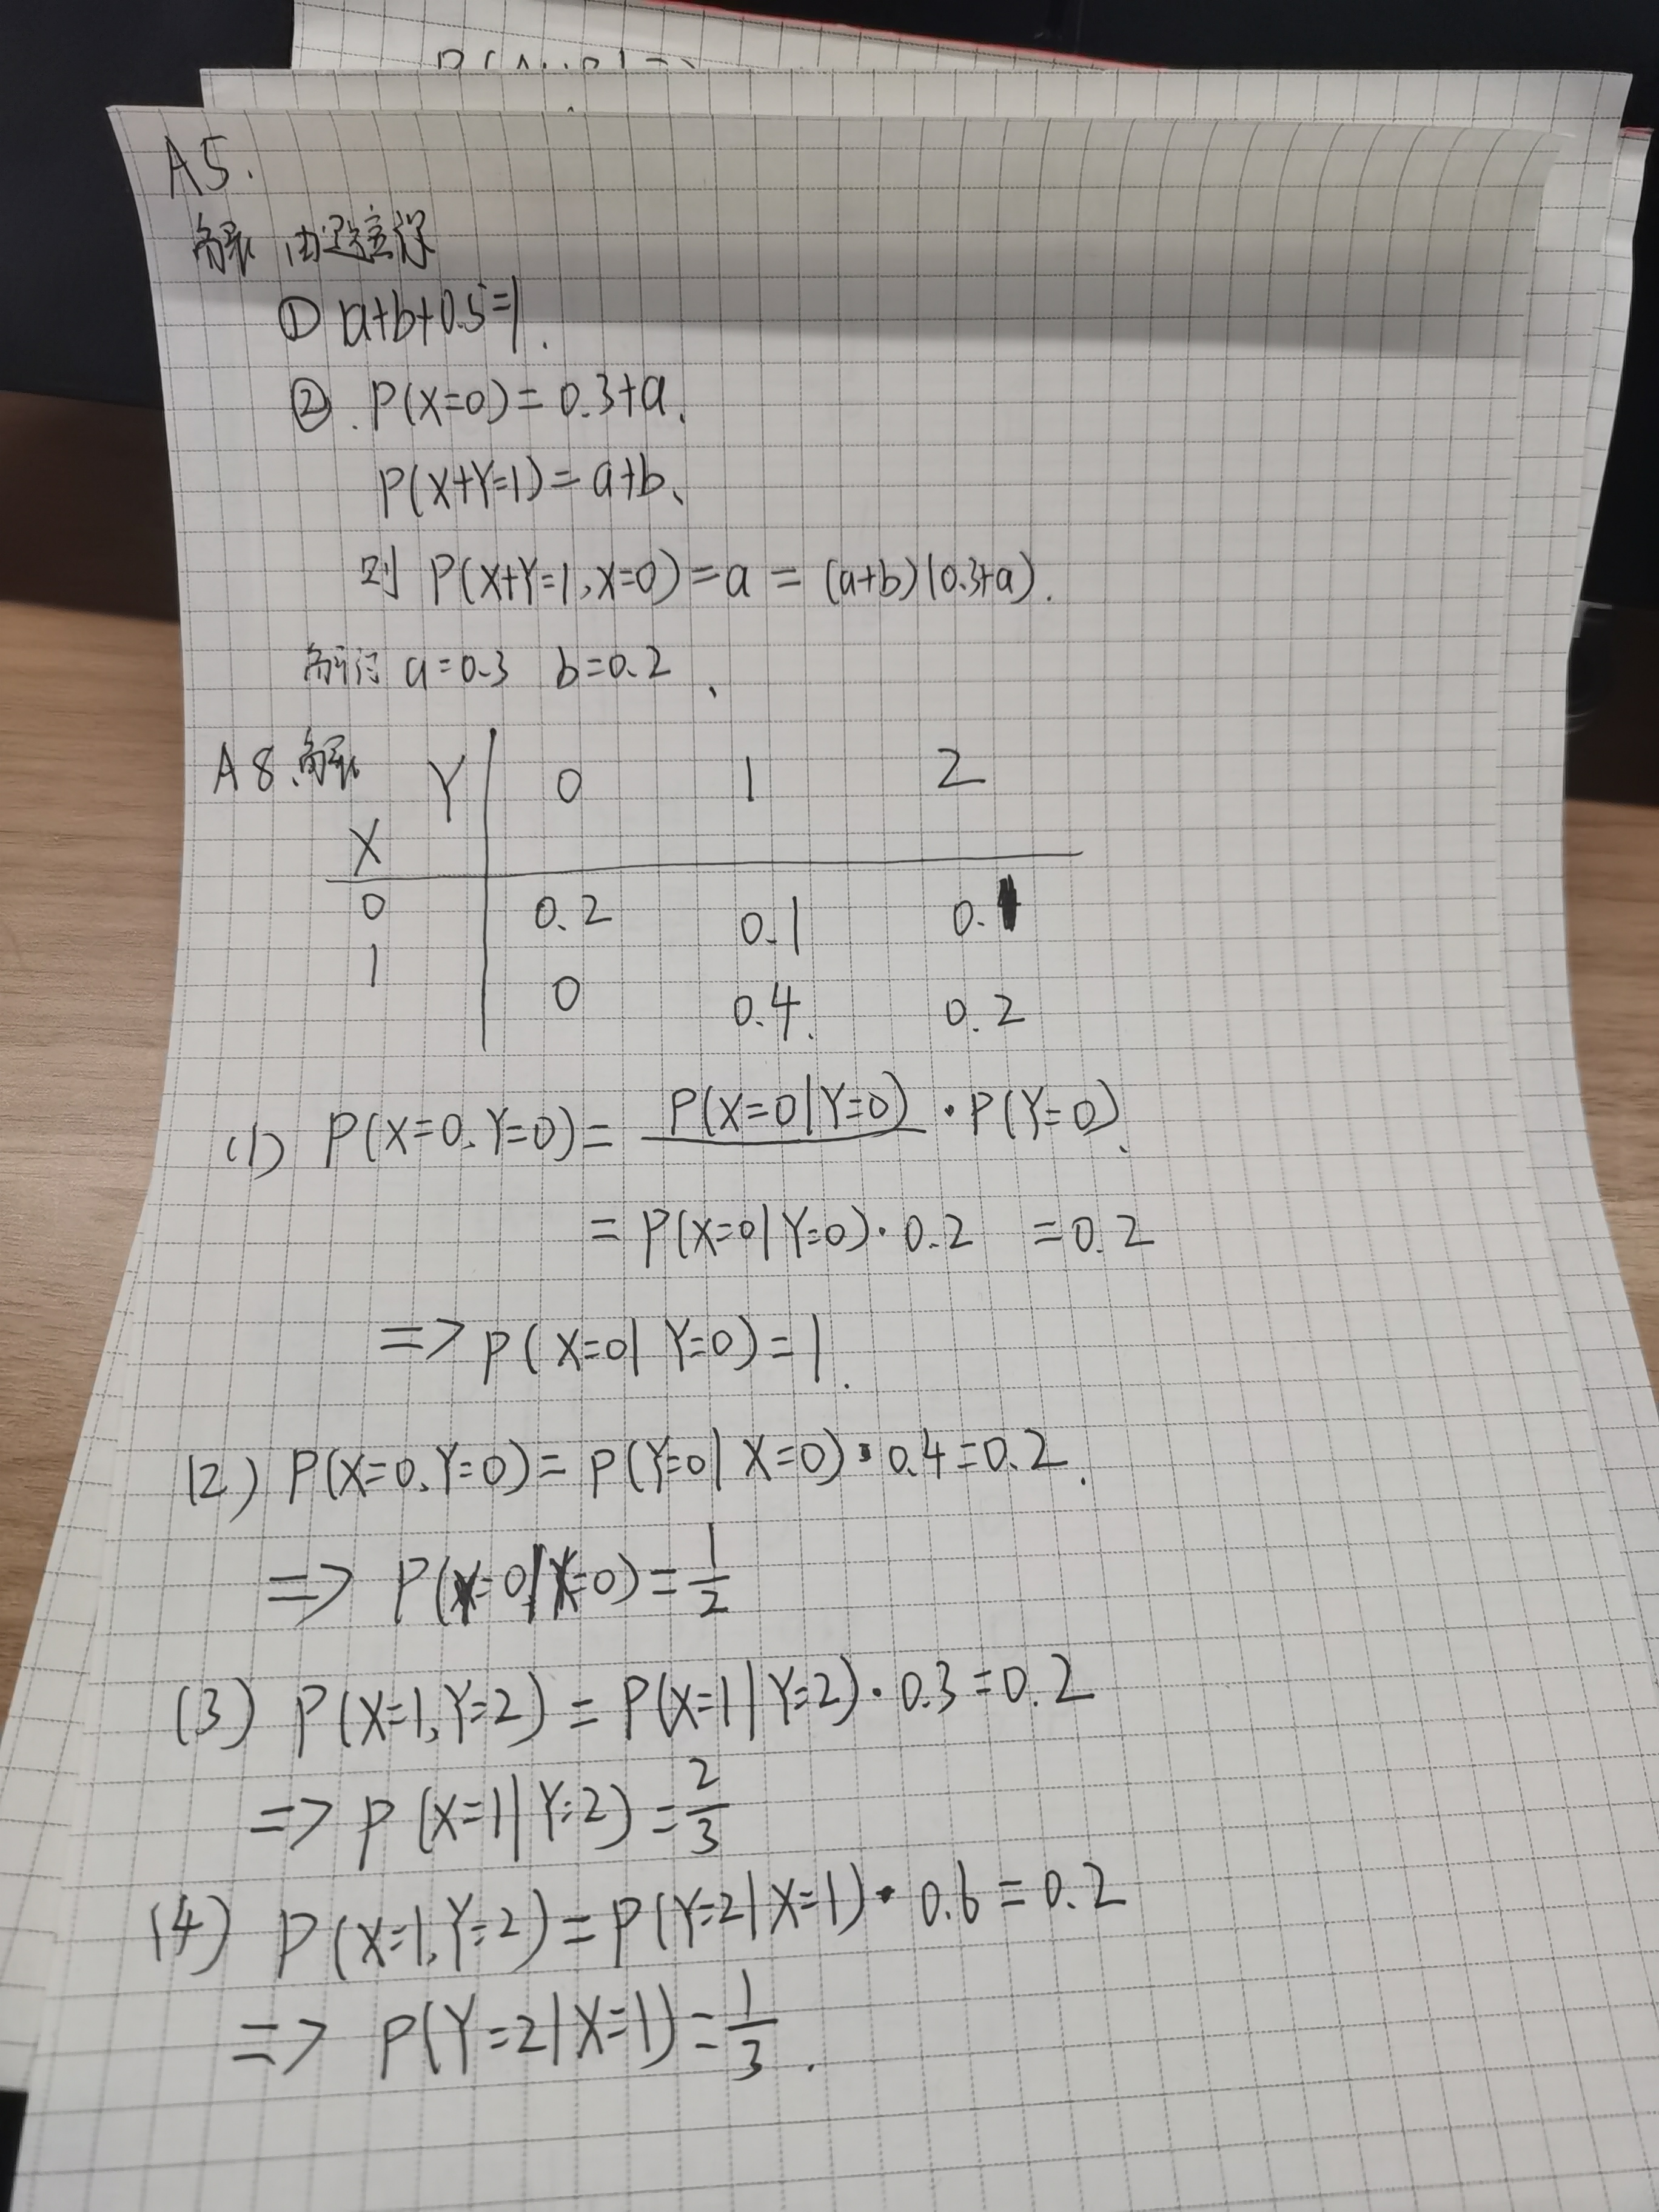 A5.
解 由题意得
① a+b+0.5=1.
②. P(X=0)=0.3+a.
P(X+Y=1)=a+b、
则 P(X+Y=1,X=0)=a=(a+b)(0.3+a).
解得 a=0.3 b=0.2、
A8.解 Y 0 1 2
X
0 0.2 0.1 0.1
1 0 0.4. 0.2
(1) P(X=0.Y=0)=P(X=0|Y=0)·P(Y=0).
=P(X=0|Y=0)·0.2 =0.2
=>P(X=0|Y=0)=1.
(2) P(X=0.Y=0)=P(Y=0|X=0)·0.4=0.2.
=> P(Y=0|X=0)=1/2
(3) P(X=1,Y=2)=P(X=1|Y=2)·0.3=0.2
=> P(X=1|Y=2)=2/3
(4) P(X=1,Y=2)=P(Y=2|X=1)·0.6=0.2
=> P(Y=2|X=1)=1/3.